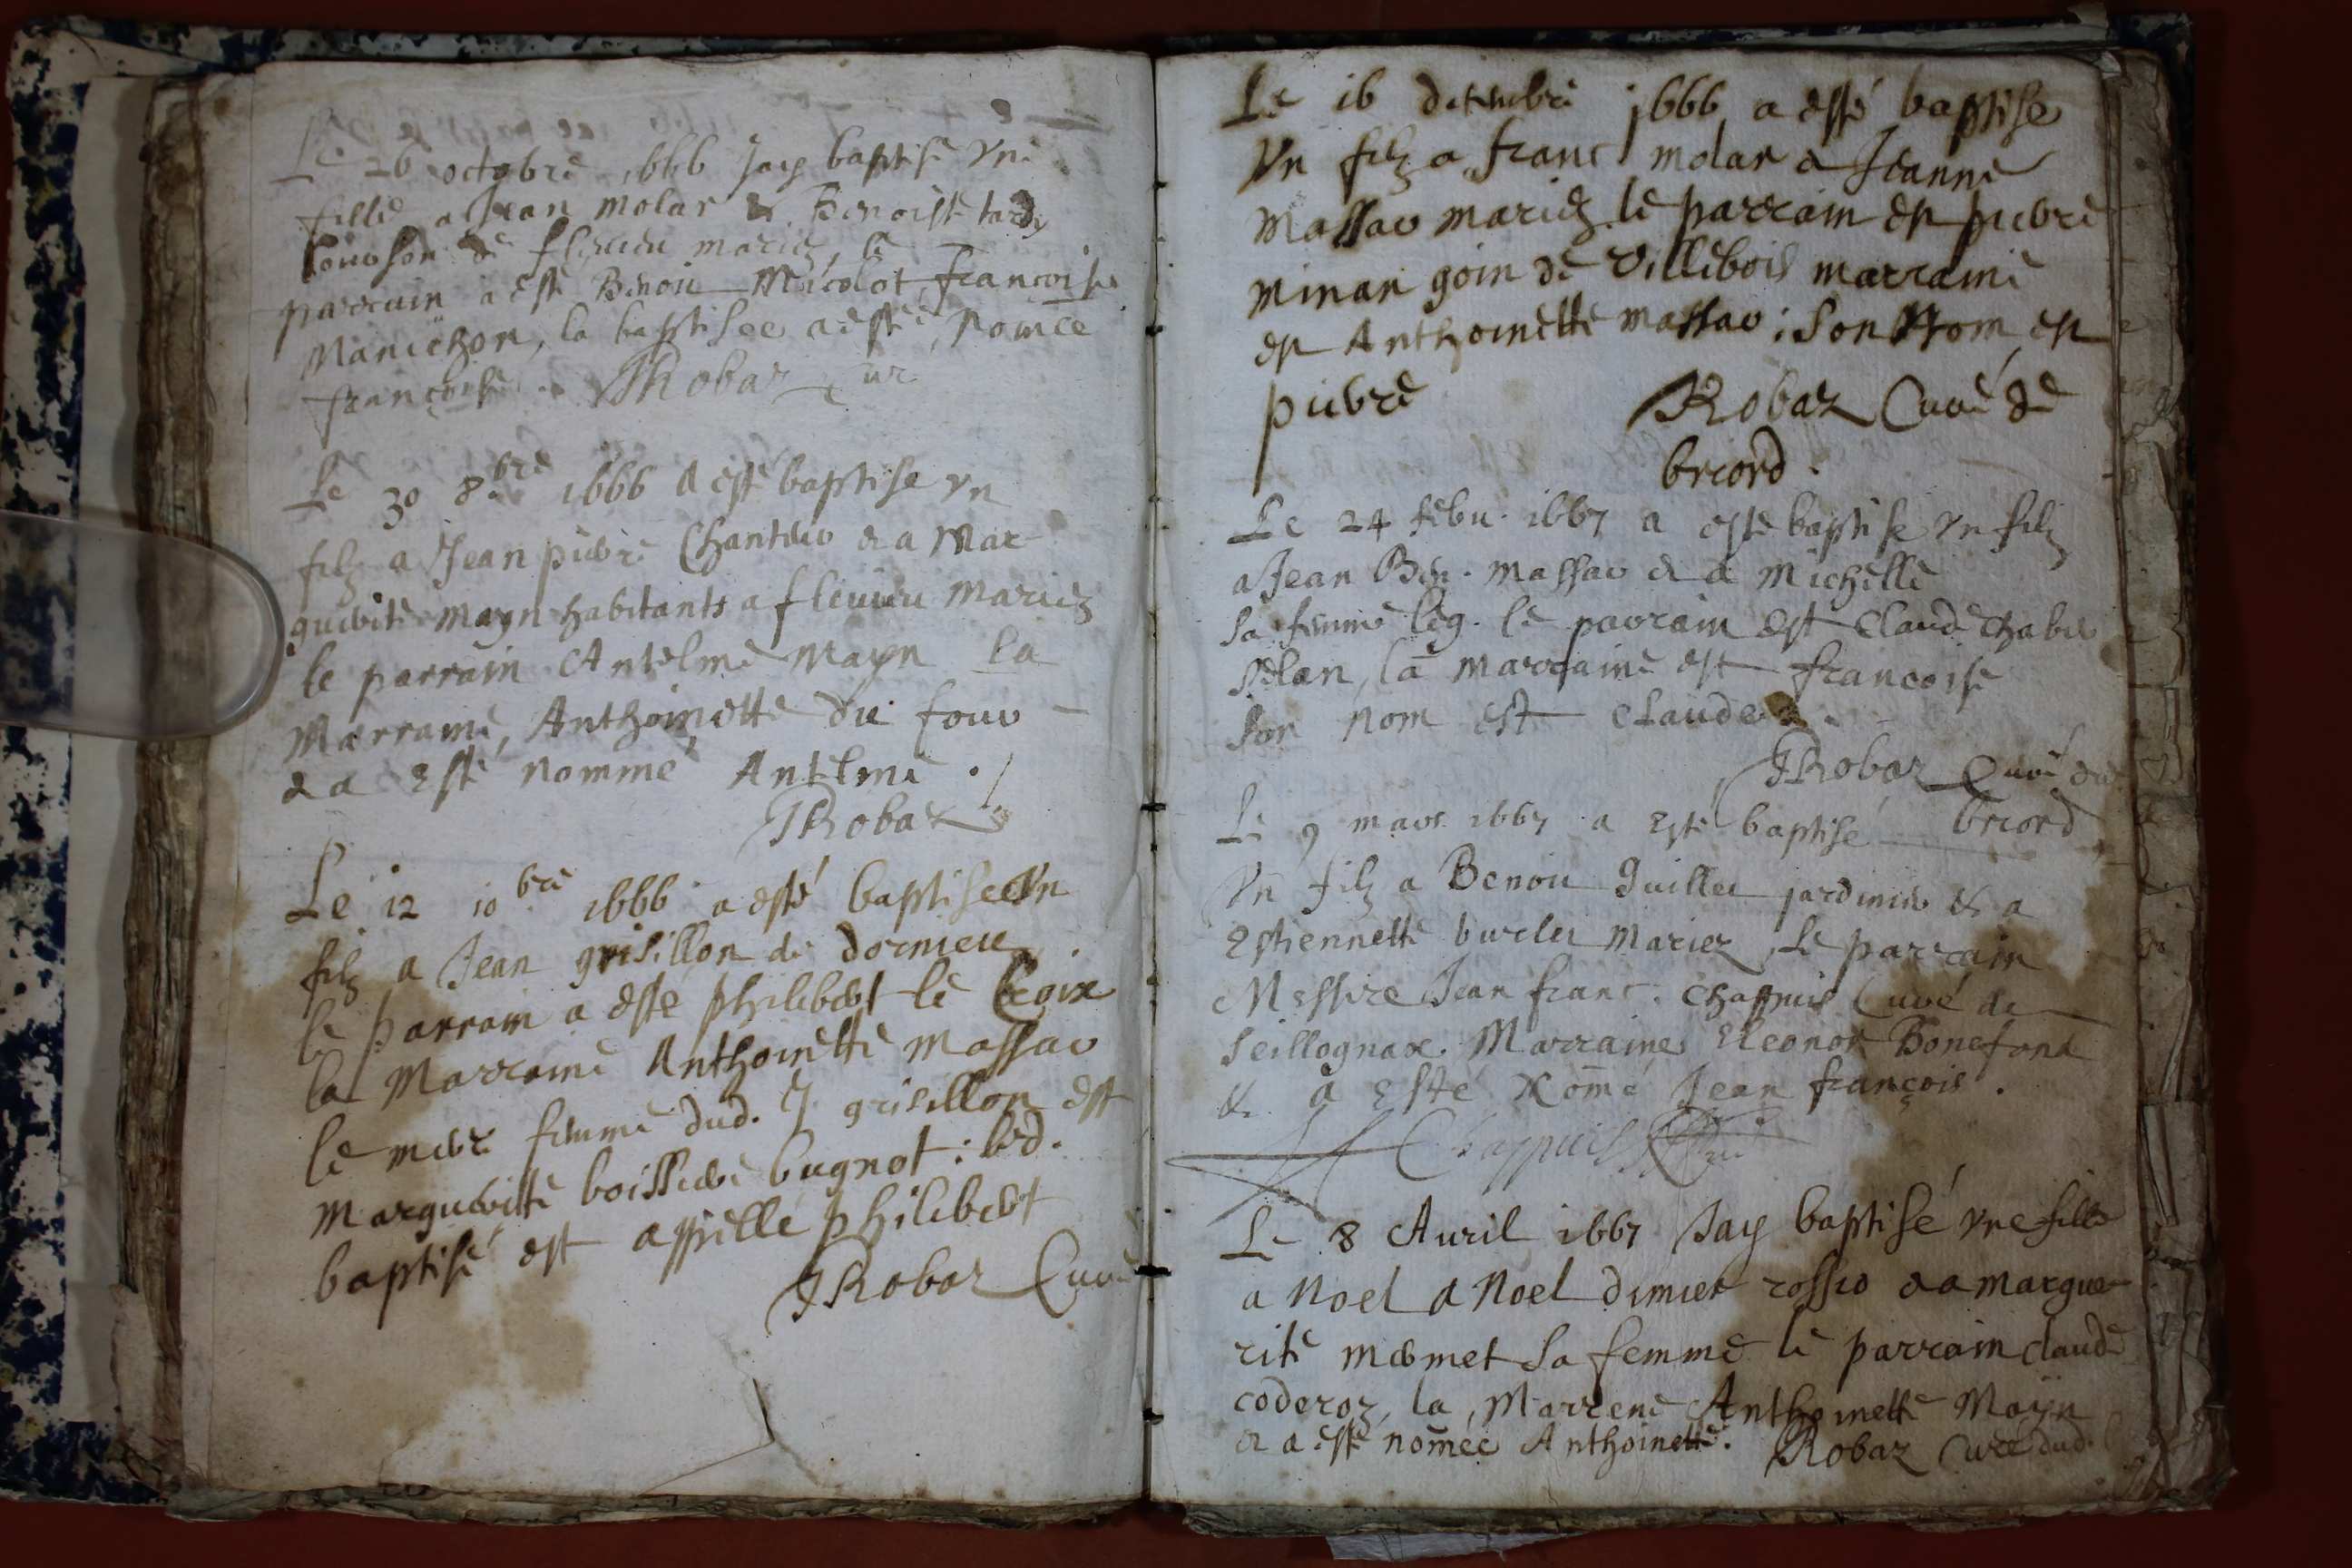 Le 26 octobre 1666 Jay baptisé vne
fille a Jean molar & Benoiste tardy
de fleurieu mariez, le
parrain a esté Benoit Micolot françoise
Manichon, la baptisee a esté, nomee
françoise. JRobaz Cur
Le 30 8bre 1666 a esté baptise vn
filz a Jean pierre Chanteur & a Mar
guerite mayn habitants a fleurieu mariez
le parrain Antelme Mayn la
Marraine, Anthoinette du four
& a Esté nommé Antelme ./
JRobaz
Le 12 10bre 1666 a esté baptisé Vn
filz a Jean grisillon de dornieu
le parrain a esté philibert le Croix
la Marraine Anthoinette massar
le mere femme dud. J grisillon est
marguerite boissiere bugnot : led.
baptisé est appellé philibert
JRobaz Curé
Le 16 decembre 1666 a esté baptisé
Vn filz a franc molar & Jeanne
Massar mariez le parrain est pierre
minan goin de Villebois marraine
est Anthoinette massar : Son Nom est
pierre Robaz Curé de
briord.
Le 24 febu. 1667 a esté baptisé vn filz
a Jean Ben. massar & a Michelle
sa femme leg. le parrain est Claude
la marraine est francoise
son nom est Claude
JRobaz Curé de
Le 9 mars 1667 a Esté baptisé briord
Vn filz a Benoit Guillet jardinier & a
Estiennette burlet Mariez, Le parrain
Messire Jean franc. Chappuis Curé de
Seillognax. Marraine Eleonor Bonefond
& a Esté Nomé Jean françois.
Chappuis
Le 8 Auril 1667 Jay baptisé vne fille
a Noel a Noel dimier rossio & a Margue
rite mermet sa femme le parrain claude
coderoz, la Marrene Anthoinette Mayn
& a esté nomee Anthoinette. Robaz Curé dud.